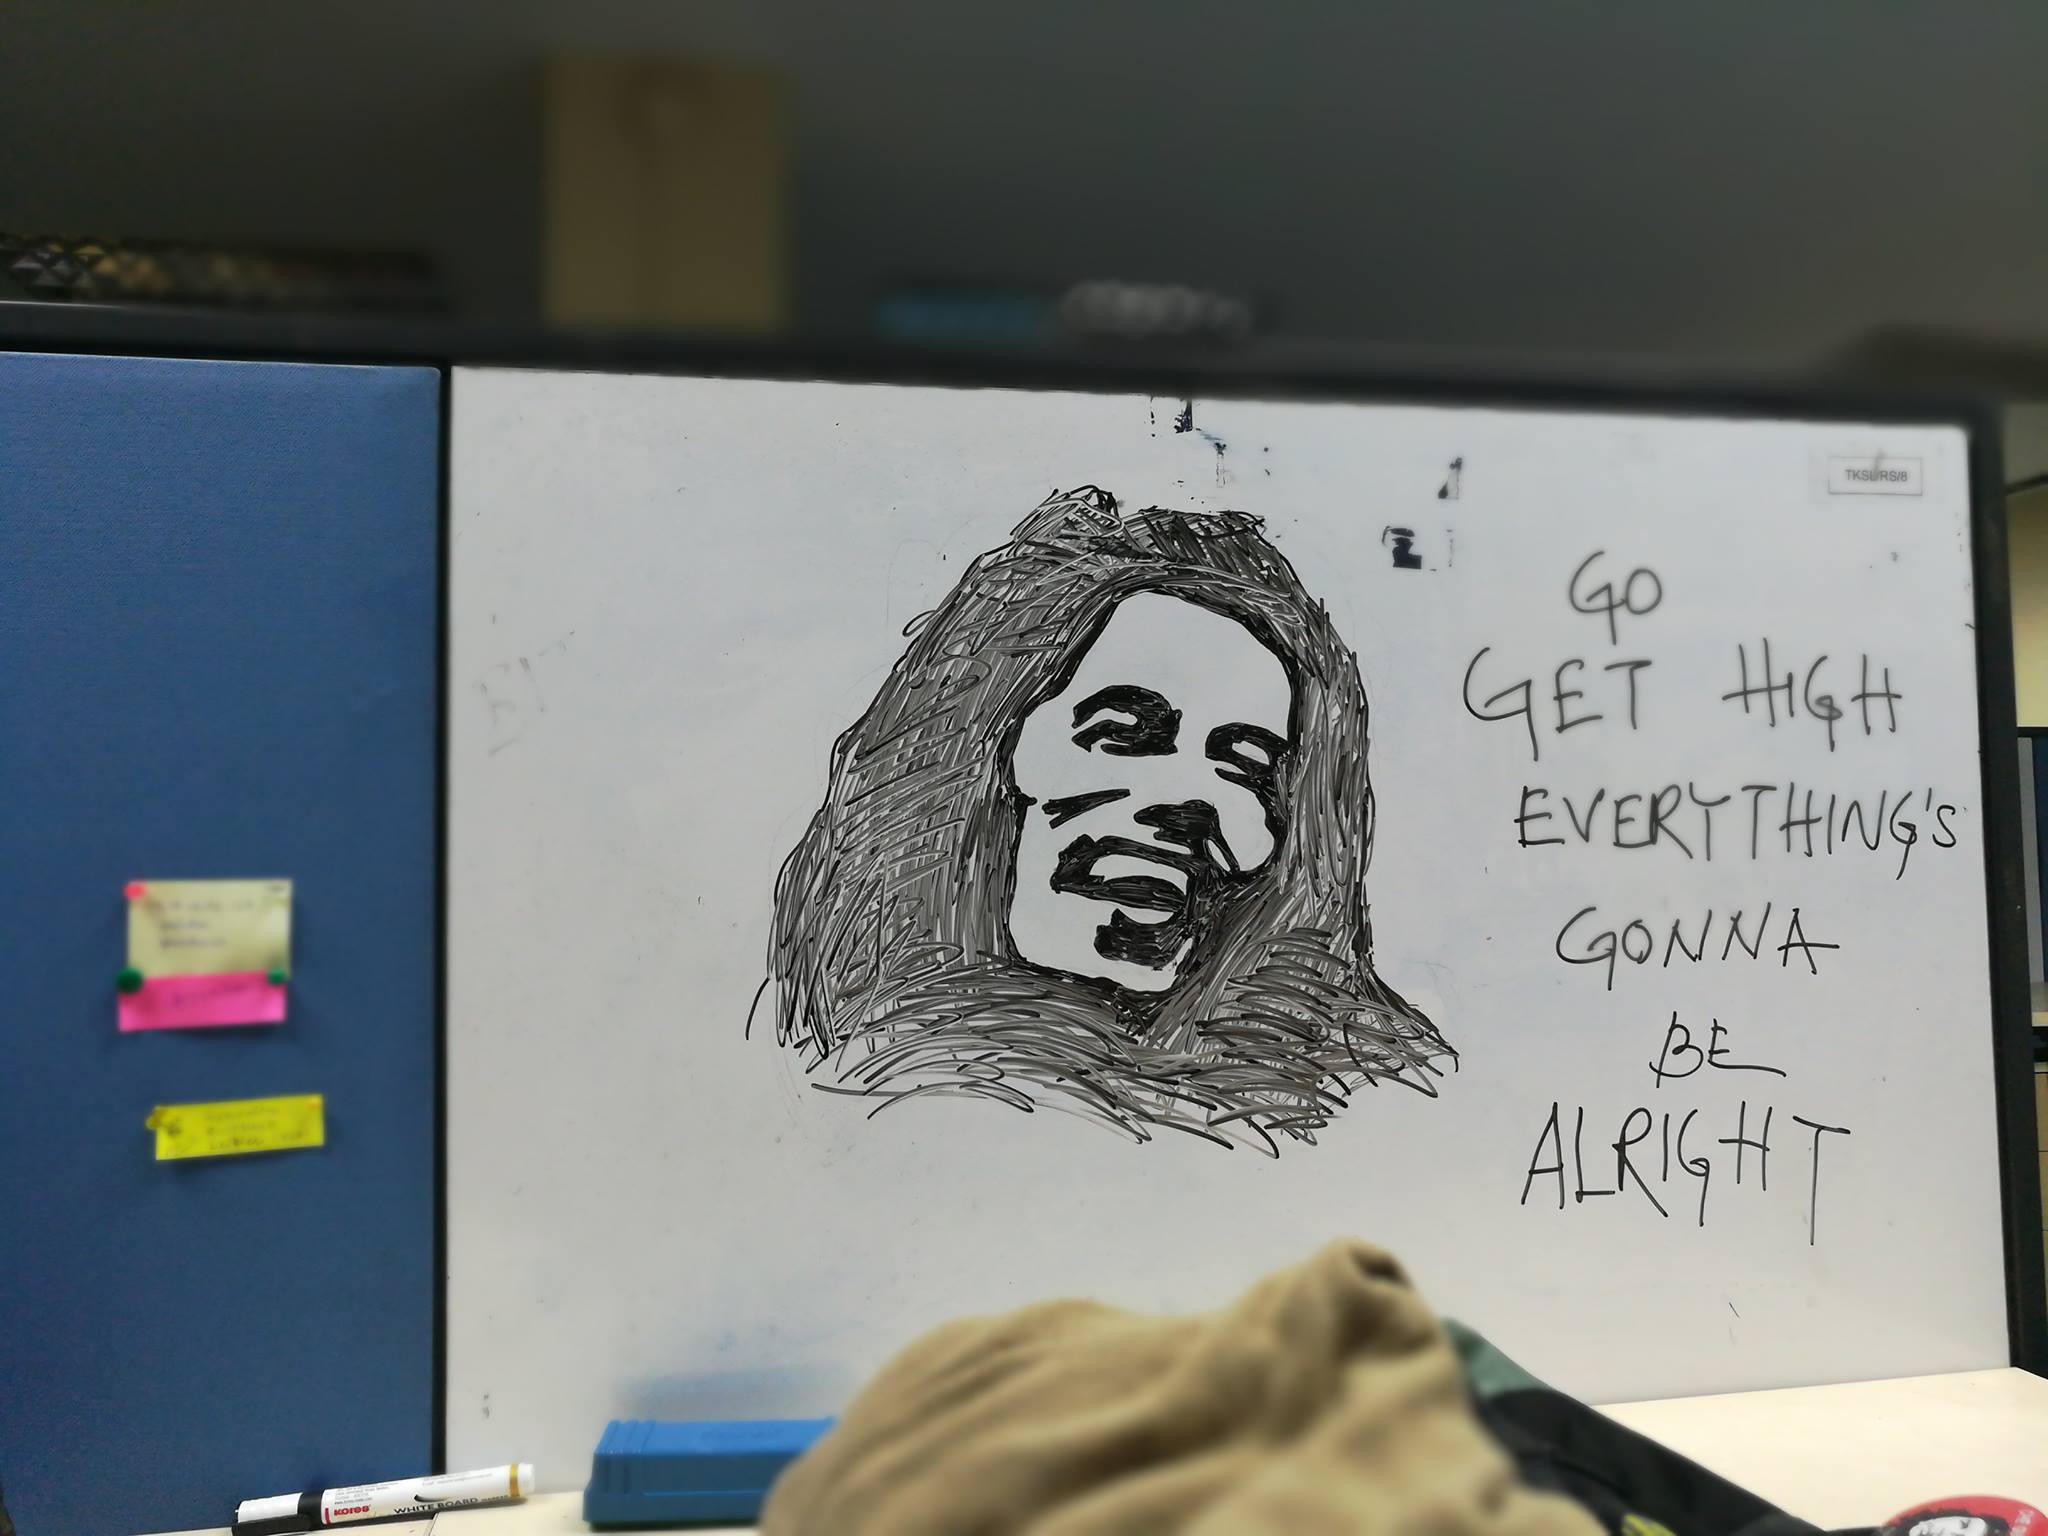 TKSL/RS/8
GO
GET HIGH
EVERYTHING'S
GONNA
BE
ALRIGHT
KORES
WHITE BOARD